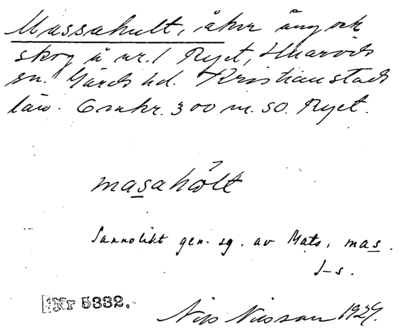 Massahult, åker äng och
skog å nr. 1 Ryet, Hvaröds
sn. Gärds hd. Kristianstads
län. Omkr. 300 m. SO. Ryet.
masahölt
Sannolikt gen. sg. av Mats, mas.
J-s.
Nr 5332.
Nils Nilsson 1929.